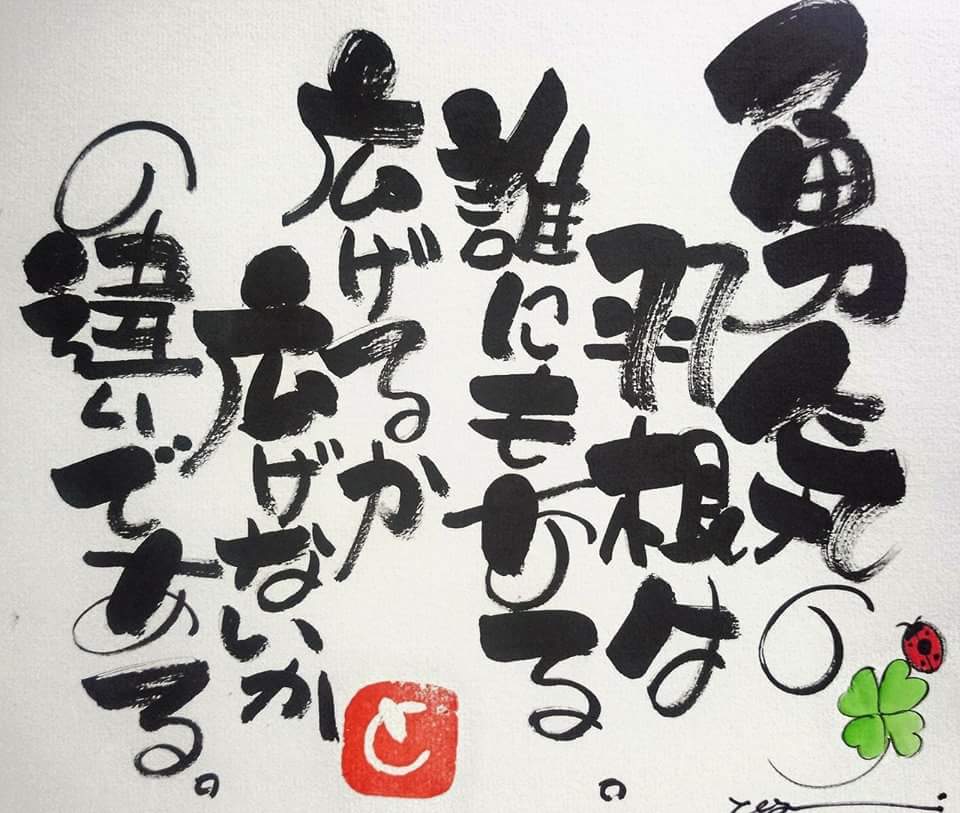 勇気の
羽根は
誰にもある。
広げてるか
広げないか
の違いである。
と